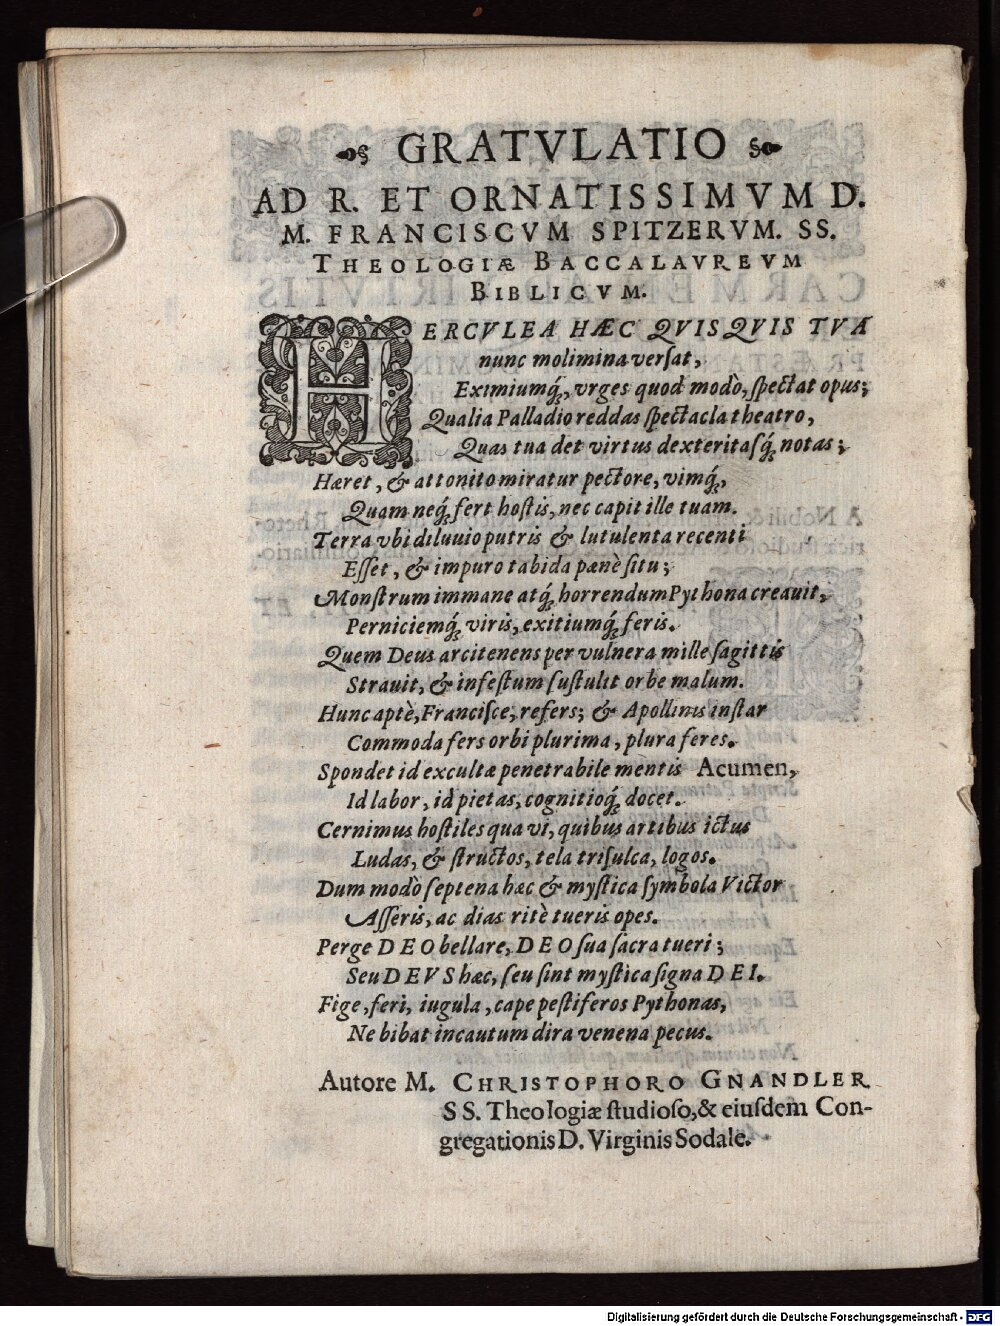 GRATVLATIO
AD R. ET ORNATISSIMVM D.
M. FRANCISCVM SPITZERVM. SS.
THEOLOGIÆ BACCALAVREVM
BIBLICVM.
HERCVLEA HÆC QVISQVIS TVA
nunc molimina verſat,
Eximiumq́;, vrges quod modò, ſpectat opus;
Qualia Palladio reddas ſpectacla theatro,
Quas tua det virtus dexteritaſq́; notas;
Hæret, & attonito miratur pectore, vimq́;,
Quam neq́; fert hoſtis, nec capit ille tuam.
Terra vbi diluuio putris & lutulenta recenti
Eſſet, & impuro tabida pænè ſitu;
Monſtrum immane atq́; horrendum Pythona creauit,
Perniciemq́; viris, exitiumq́; feris.
Quem Deus arcitenens per vulnera mille ſagittis
Strauit, & infeſtum ſuſtulit orbe malum.
Hunc aptè, Franciſce, refers; & Apollinis inſtar
Commoda fers orbi plurima, plura feres.
Spondet id excultæ penetrabile mentis Acumen,
Id labor, id pietas, cognitioq́; docet.
Cernimus hoſtiles qua vi, quibus artibus ictus
Ludas, & ſtructos, tela triſulca, logos.
Dum modò ſeptena hæc & myſtica ſymbola Victor
Aſſeris, ac dias ritè tueris opes.
Perge DEO bellare, DEO ſua ſacra tueri;
Seu DEVS hæc, ſeu ſint myſtica ſigna DEI.
Fige, feri, iugula, cape peſtiferos Pythonas,
Ne bibat incautum dira venena pecus.
Autore M. CHRISTOPHORO GNANDLER
SS. Theologiæ ſtudioſo, & eiuſdem Con-
gregationis D. Virginis Sodale.
Digitalisierung gefördert durch die Deutsche Forschungsgemeinschaft - DFG